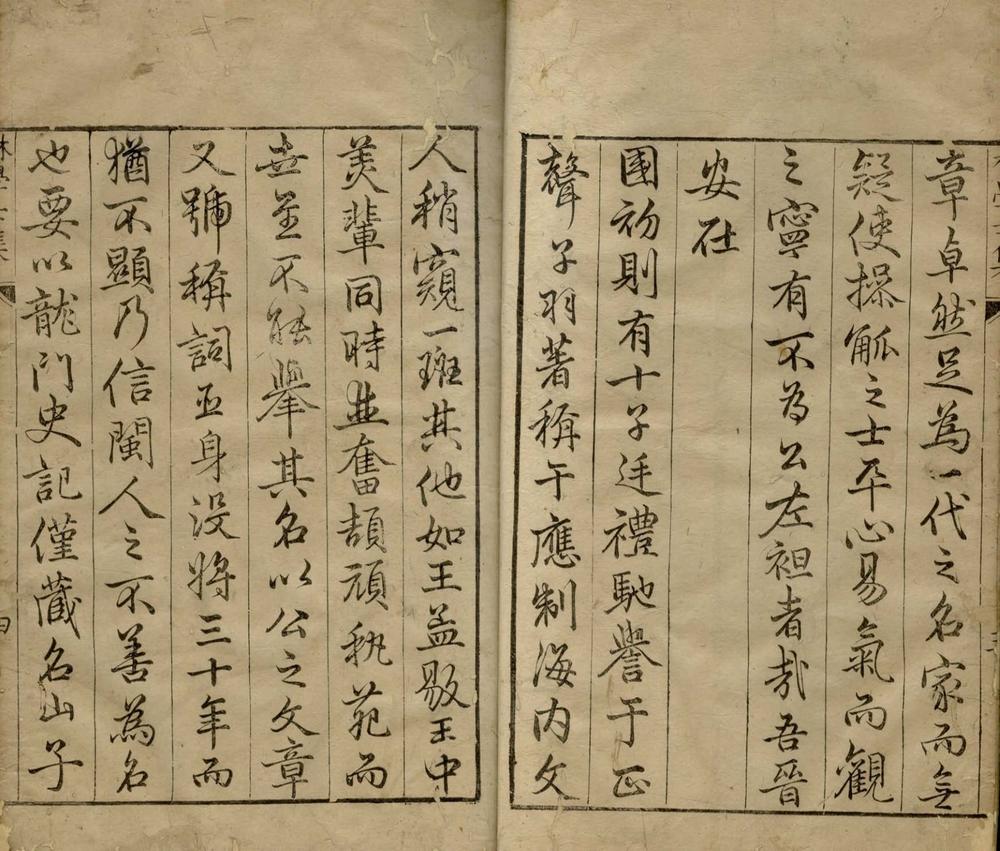 章卓然足為一代之名家而無
疑使操觚之士平心易氣而觀
之寧有不為公左袒者哉吾晉
安在
國初則有十子廷禮馳譽于正
聲子羽著稱于應制海內文
人稍窺一斑其他如王孟敭王中
美輩同時並奮頡頏執苑而
世並不能舉其名以公之文章
又號稱詞臣身沒將三十年而
猶不顯乃信閩人之不善為名
也要以龍門史記僅藏名山子